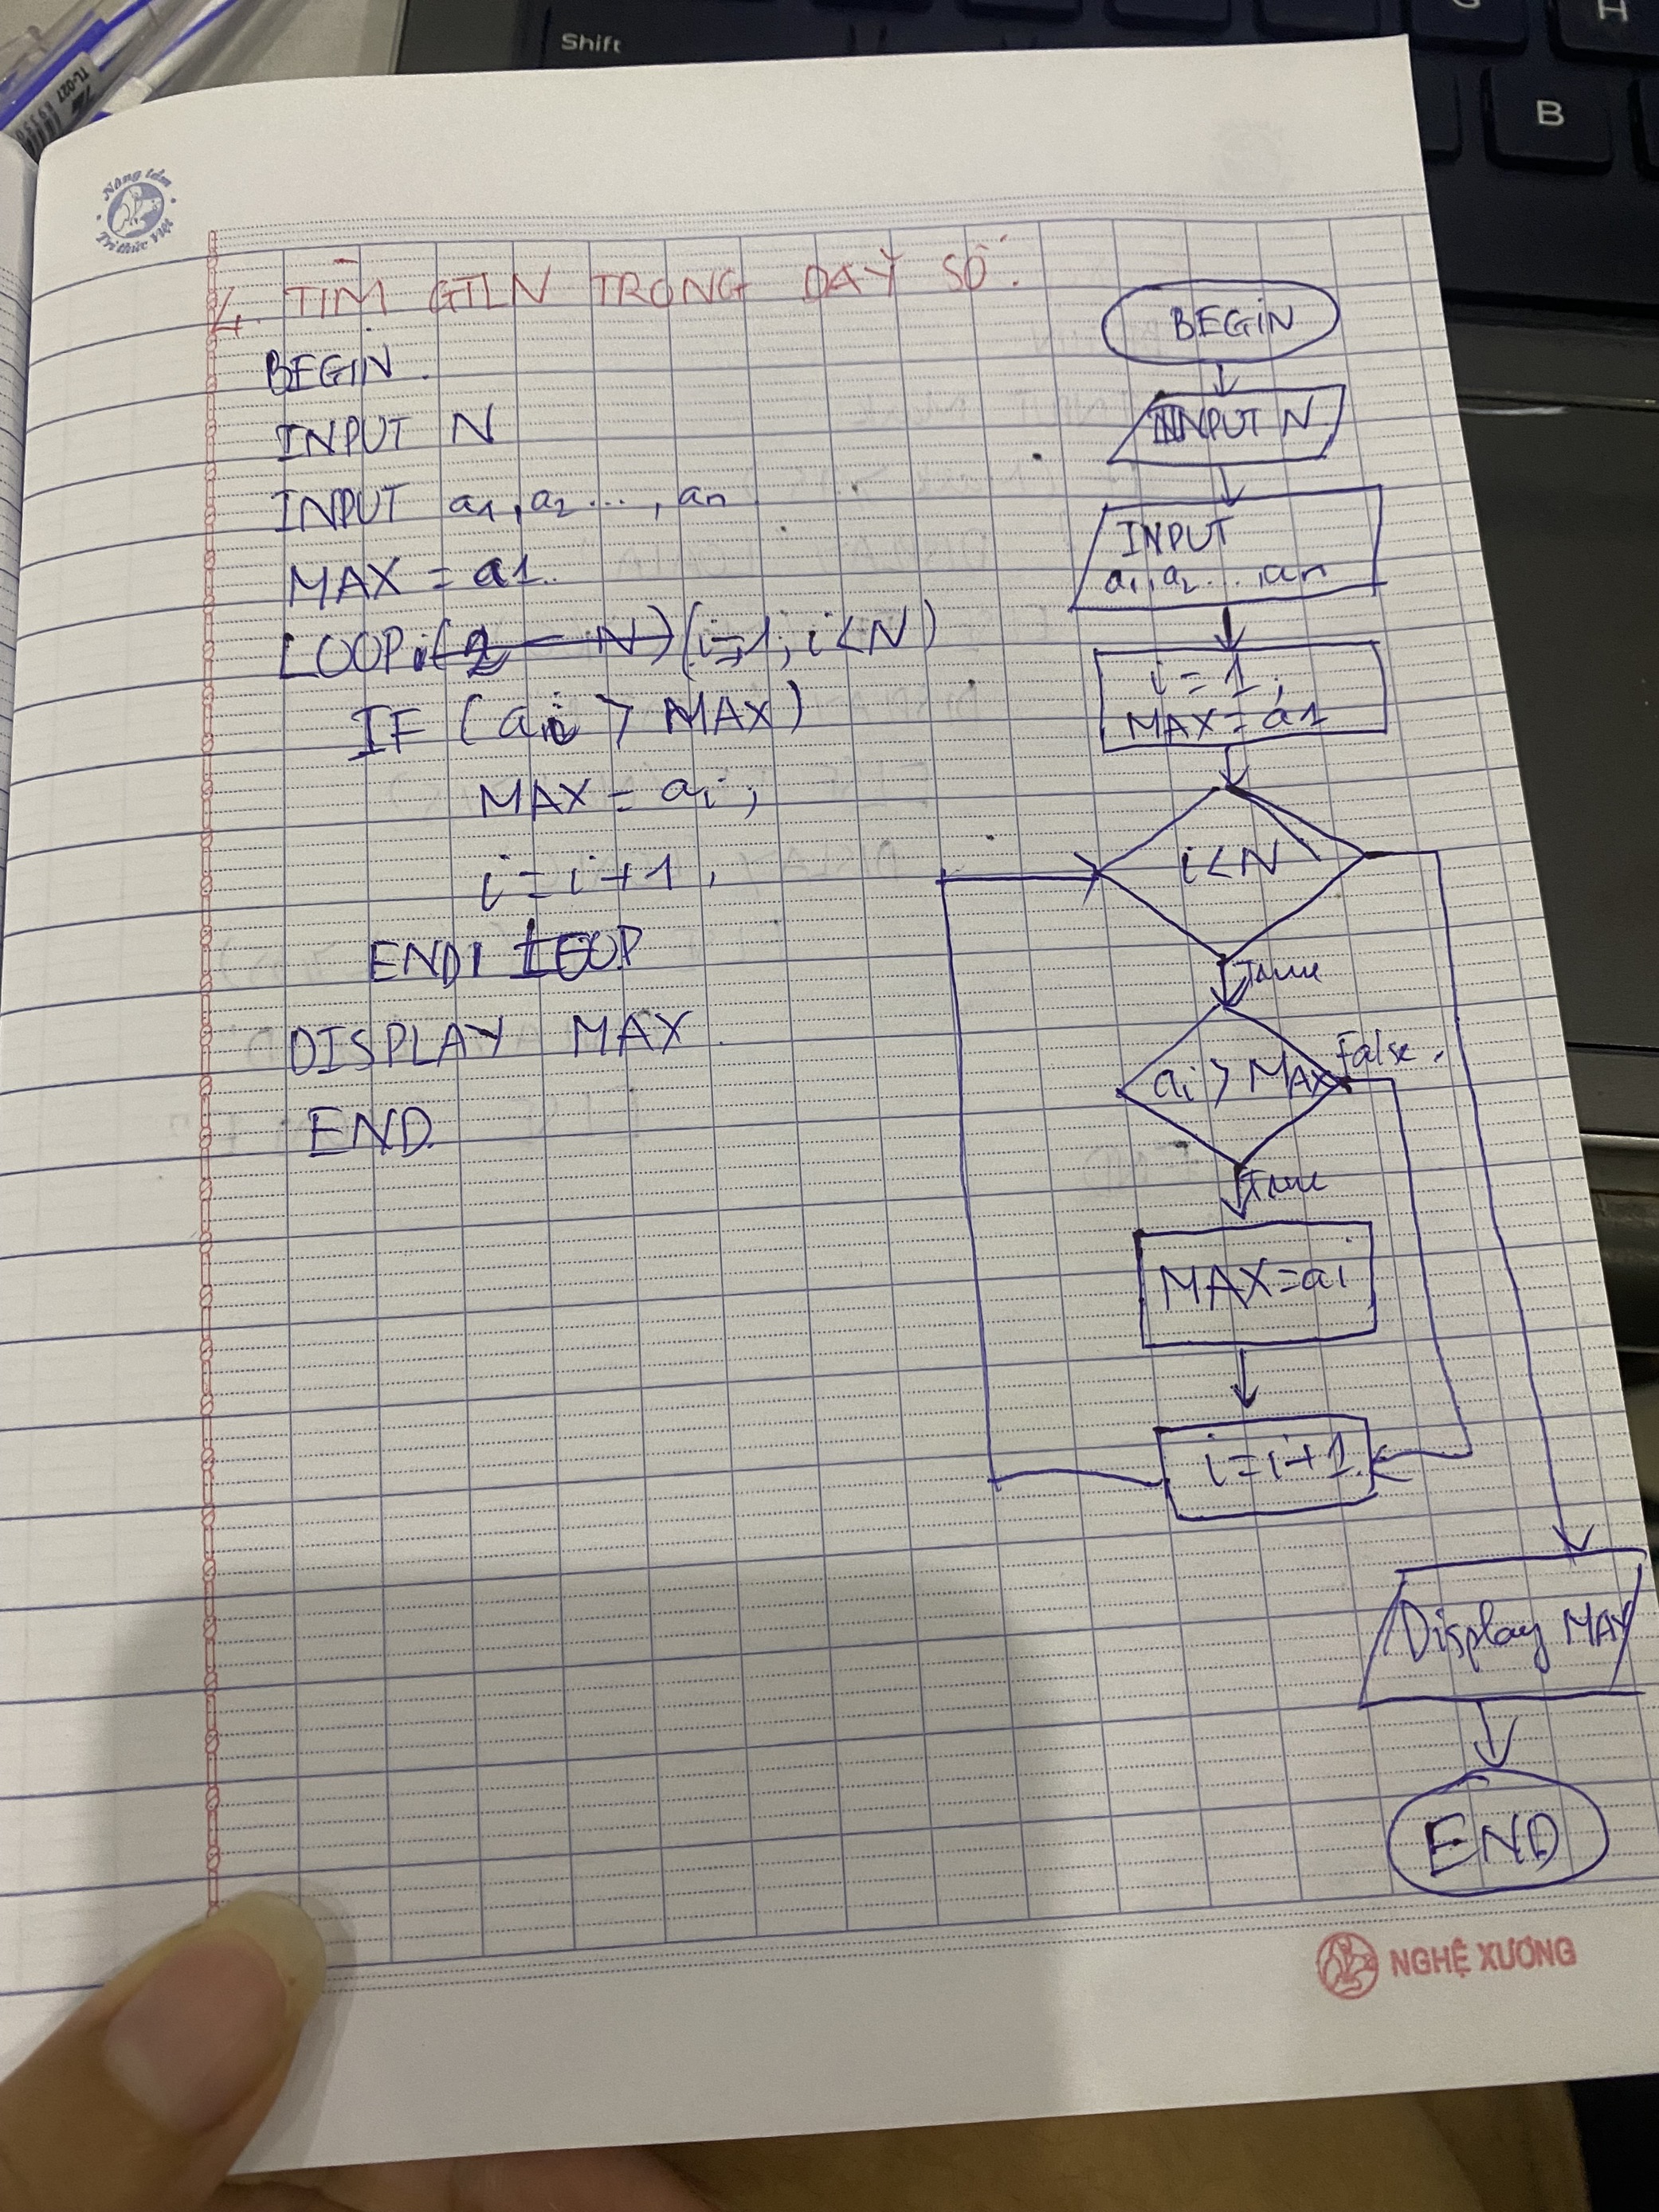 Shift
G
H
B
TL-027
Nâng tầm
Tri thức Việt
4. TÌM GTLN TRONG DÃY SỐ.
BEGIN.
INPUT N
INPUT a1, a2 ..., an
MAX = a1.
LOOP (i=1; i<N)
IF (ai > MAX)
MAX = ai;
i = i + 1,
END LOOP
DISPLAY MAX.
END.
BEGIN
INPUT N
INPUT
a1, a2 ..., an
i = 1;
MAX = a1
i < N
True
ai > MAX
False.
True
MAX = ai
i = i + 1.
Display MAX
END
NGHỆ XƯƠNG